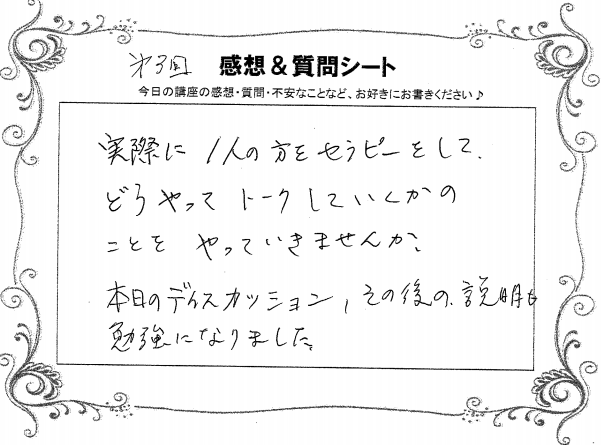 第3回 感想&質問シート
今日の講座の感想・質問・不安なことなど、お好きにお書きください♪
実際に1人の方をセラピーをして、
どうやってトークしていくかの
ことを やっていきませんか?
本日のディスカッション、その後の説明も
勉強になりました。